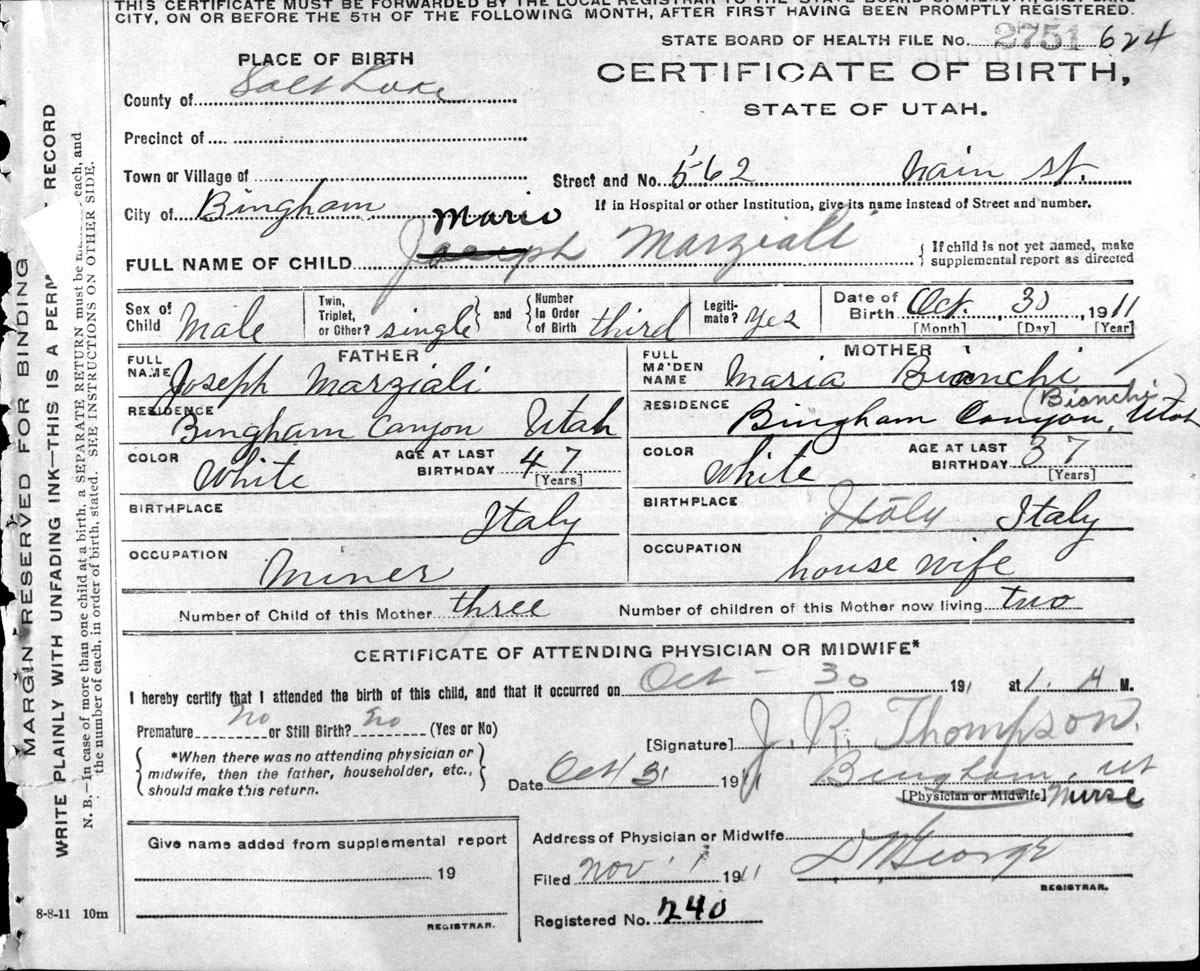 THIS CERTIFICATE MUST BE FORWARDED BY THE LOCAL REGISTRAR TO THE STATE BOARD OF HEALTH, SALT LAKE
CITY, ON OR BEFORE THE 5TH OF THE FOLLOWING MONTH, AFTER FIRST HAVING BEEN PROMPTLY REGISTERED.
STATE BOARD OF HEALTH FILE No. 2751 624
PLACE OF BIRTH
CERTIFICATE OF BIRTH,
STATE OF UTAH.
County of Salt Lake
Precinct of
Town or Village of
Street and No. 562 main st.
City of Bingham
If in Hospital or other Institution, give its name instead of Street and number.
Mario
FULL NAME OF CHILD Joseph Marziali
{ If child is not yet named, make
supplemental report as directed
Sex of Child Male
Twin, Triplet, or Other? single } and { Number In Order of Birth third
Legitimate? yes
Date of Birth Oct. 30 1911
[Month] [Day] [Year]
FATHER
FULL NAME Joseph Marziali
RESIDENCE Bingham Canyon Utah
COLOR White
AGE AT LAST BIRTHDAY 47
[Years]
BIRTHPLACE Italy
OCCUPATION Miner
MOTHER
FULL MAIDEN NAME Maria Bianchi
(Bianchi)
RESIDENCE Bingham Canyon, Utah
COLOR White
AGE AT LAST BIRTHDAY 37
[Years]
BIRTHPLACE Italy Italy
OCCUPATION house wife
Number of Child of this Mother three
Number of children of this Mother now living two
CERTIFICATE OF ATTENDING PHYSICIAN OR MIDWIFE*
I hereby certify that I attended the birth of this child, and that it occurred on Oct - 30 191 at 1. A M.
Premature no or Still Birth? no (Yes or No)
{ *When there was no attending physician or
midwife, then the father, householder, etc.,
should make this return. }
[Signature] J. R. Thompson.
Date Oct 31 1911 Bingham, ut
[Physician or Midwife] Nurse
Give name added from supplemental report
19
REGISTRAR.
Address of Physician or Midwife
Filed Nov 1 1911
George
REGISTRAR.
Registered No. 240
8-8-11 10m
MARGIN RESERVED FOR BINDING
WRITE PLAINLY WITH UNFADING INK—THIS IS A PERM RECORD
N. B.—In case of more than one child at a birth, a SEPARATE RETURN must be made each, and
the number of each, in order of birth, stated. SEE INSTRUCTIONS ON OTHER SIDE.